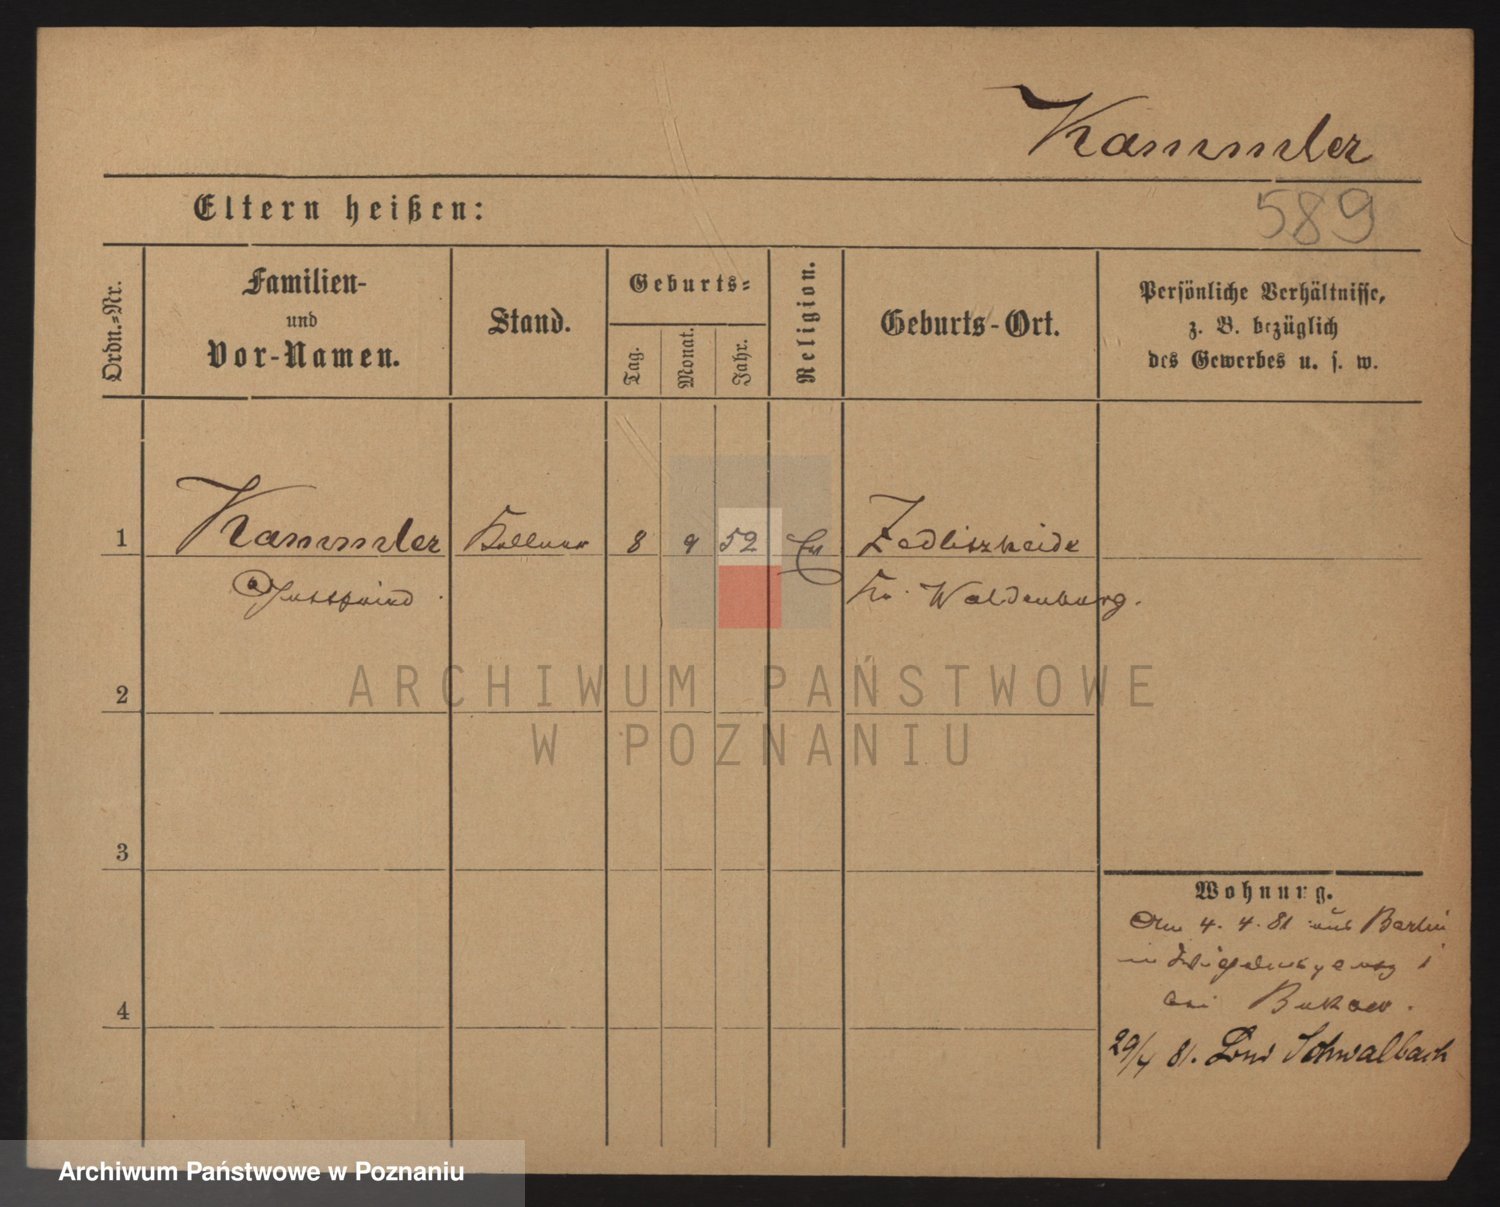 Kammler
589
Eltern heißen:
Ordn.-Nr.
Familien-
und
Vor-Namen.
Stand.
Geburts-
Tag.
Monat.
Jahr.
Religion.
Geburts-Ort.
Persönliche Verhältnisse,
z. B. bezüglich
des Gewerbes u. s. w.
1
Kammler
Kellner
8
9
52
Ev
Zedlitzheide
Kr. Waldenburg.
ARCHIWUM PAŃSTWOWE
W POZNANIU
2
3
4
Wohnung.
Am 4. 4. 81 aus Berlin
bei Bukow.
29/4 81. Schwalbach
Archiwum Państwowe w Poznaniu